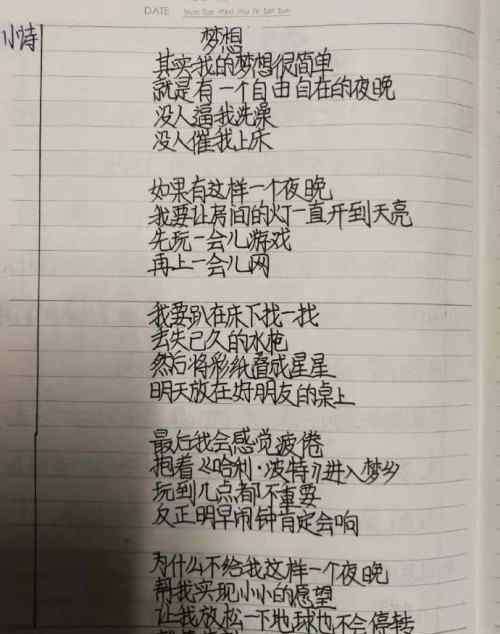 DATE
小诗
梦想
其实我的梦想很简单
就是有一个自由自在的夜晚
没人逼我洗澡
没人催我上床
如果有这样一个夜晚
我要让房间的灯一直开到天亮
先玩一会儿游戏
再上一会儿网
我要趴在床下找一找
丢失已久的水枪
然后将彩纸叠成星星
明天放在好朋友的桌上
最后我会感觉疲倦
抱着《哈利·波特》进入梦乡
玩到几点都不重要
反正明早闹钟肯定会响
为什么不给我这样一个夜晚
帮我实现小小的愿望
让我放松一下地球也不会停转